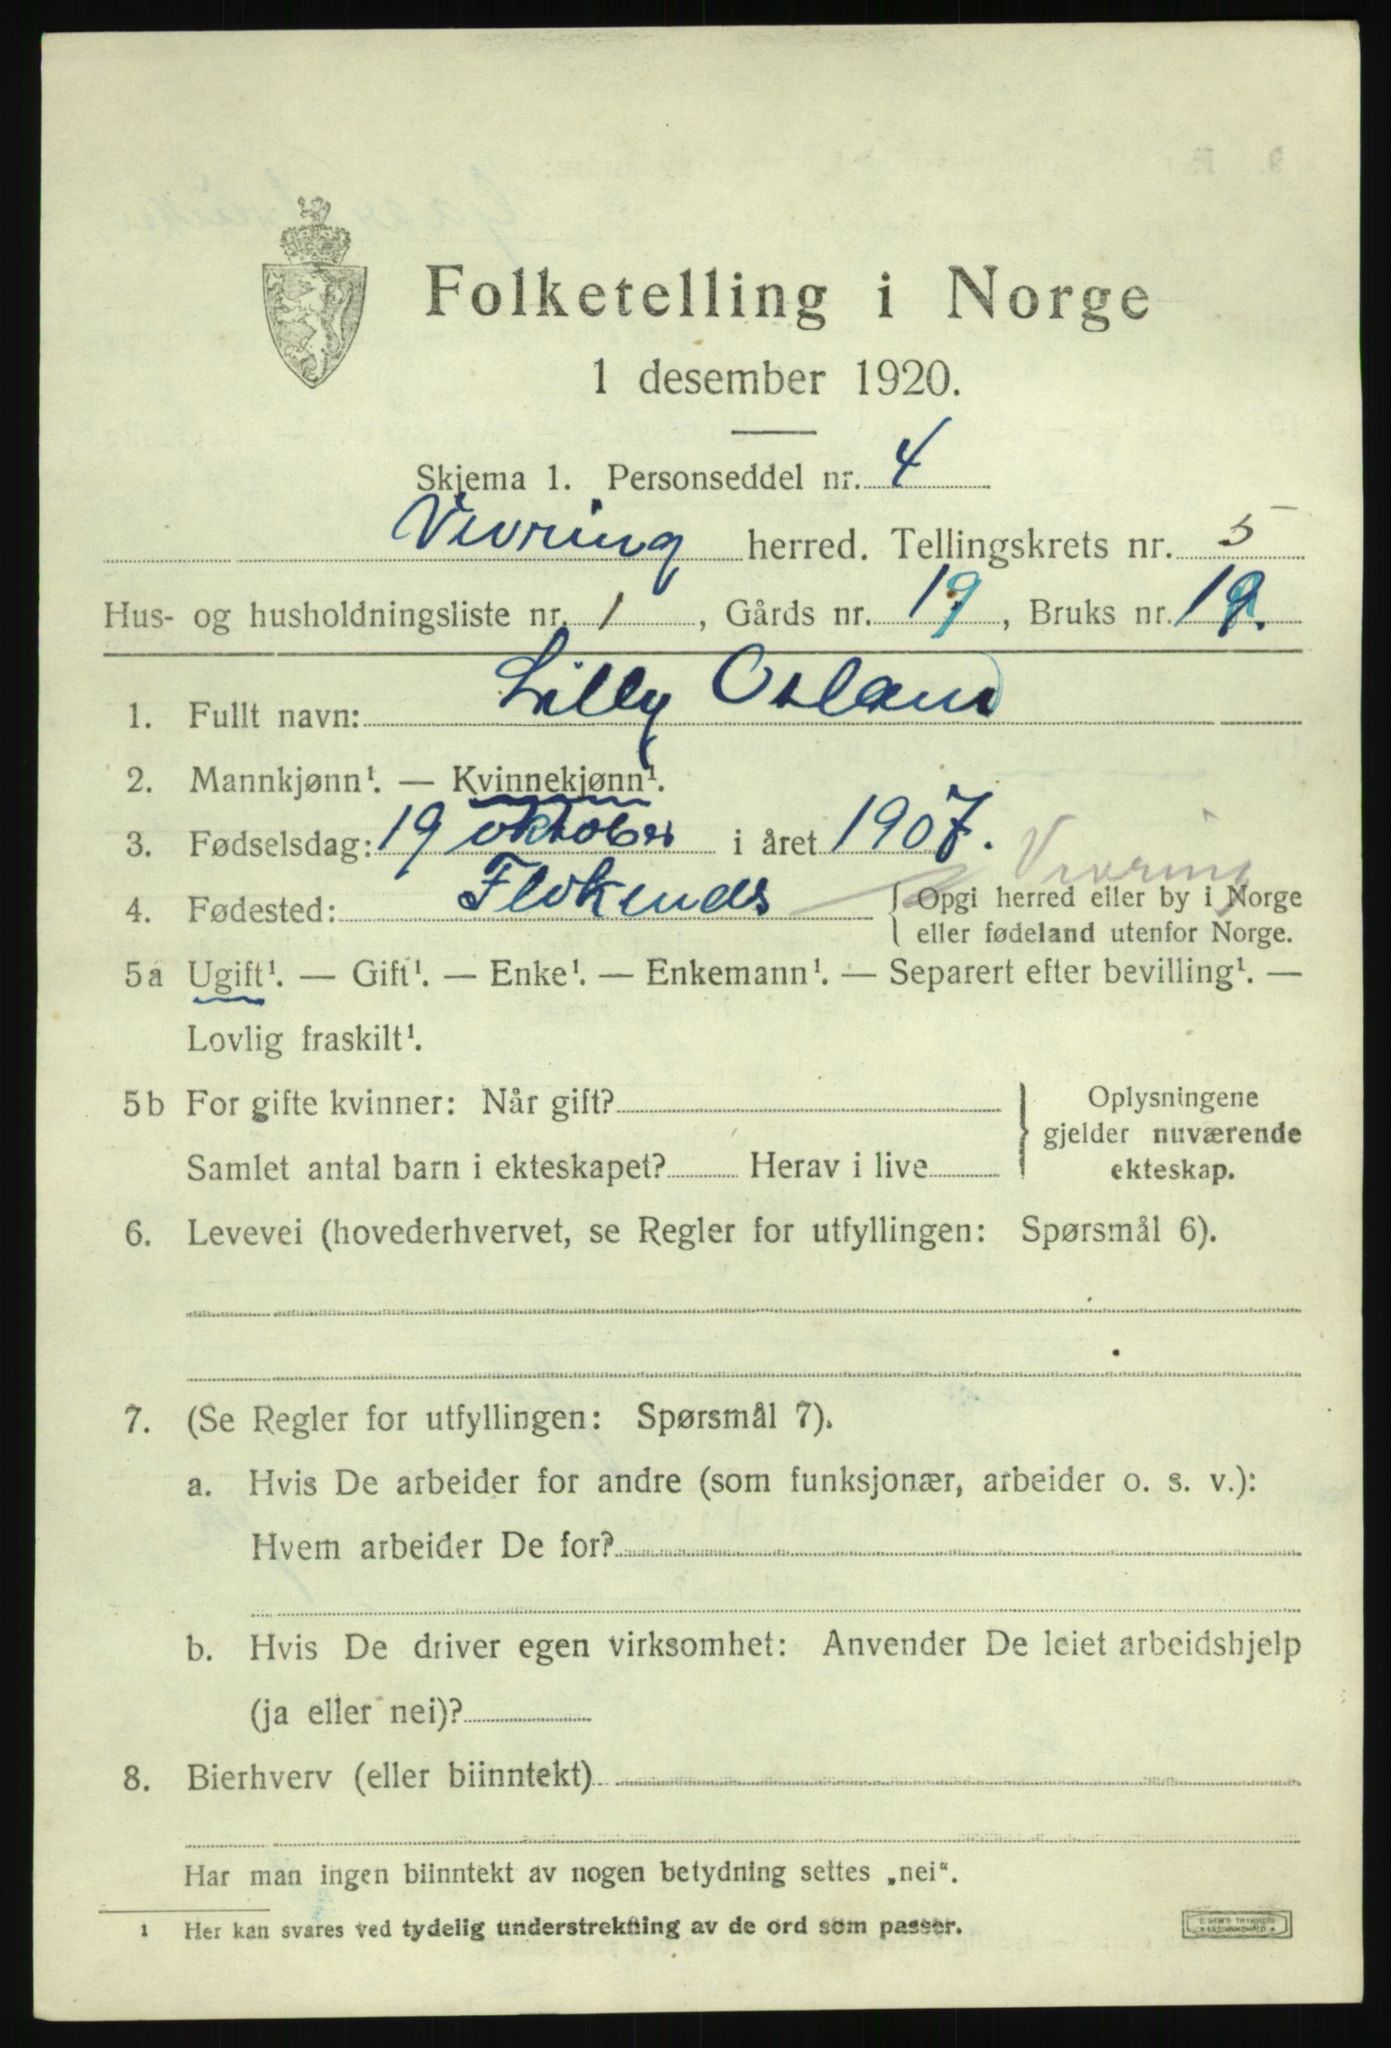 Folketelling i Norge
1 desember 1920.
Skjema 1. Personseddel nr. 4
Vevring herred. Tellingskrets nr. 5
Hus- og husholdningsliste nr. 1, Gårds nr. 19, Bruks nr.
1. Fullt navn: Lilly Osland
2. Mannkjønn¹. — Kvinnekjønn¹.
3. Fødselsdag: 19 oktober i året 1907.
Vevring
4. Fødested: { Opgi herred eller by i Norge
eller fødeland utenfor Norge.
5a Ugift¹. — Gift¹. — Enke¹. — Enkemann¹. — Separert efter bevilling¹. —
Lovlig fraskilt¹.
5b For gifte kvinner: Når gift? } Oplysningene
gjelder nuværende
Samlet antal barn i ekteskapet? Herav i live ekteskap.
6. Levevei (hovederhvervet, se Regler for utfyllingen: Spørsmål 6).
7. (Se Regler for utfyllingen: Spørsmål 7).
a. Hvis De arbeider for andre (som funksjonær, arbeider o. s. v.):
Hvem arbeider De for?
b. Hvis De driver egen virksomhet: Anvender De leiet arbeidshjelp
(ja eller nei)?
8. Bierhverv (eller biinntekt)
Har man ingen biinntekt av nogen betydning settes „nei“.
1 Her kan svares ved tydelig understrekning av de ord som passer.